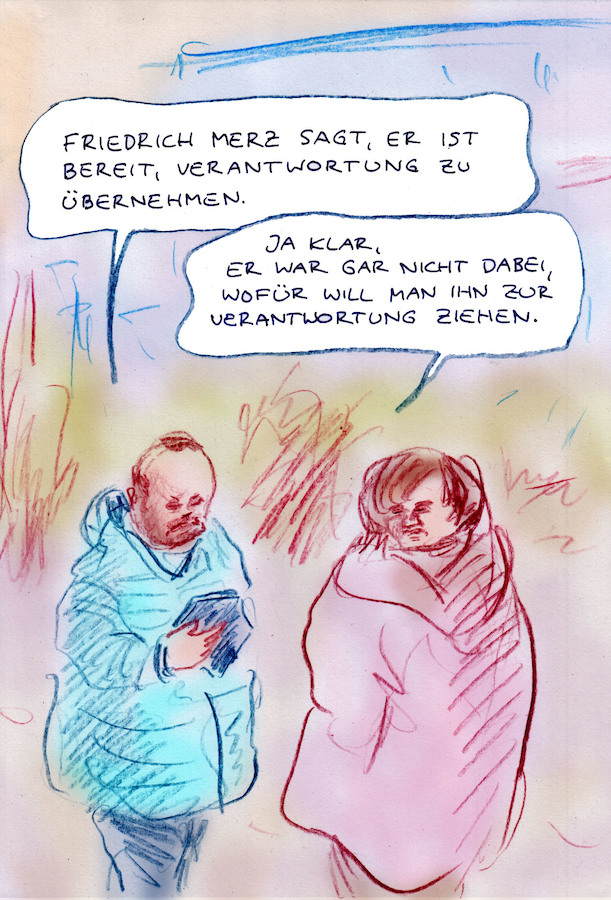 FRIEDRICH MERZ SAGT, ER IST
BEREIT, VERANTWORTUNG ZU
ÜBERNEHMEN.
JA KLAR,
ER WAR GAR NICHT DABEI,
WOFÜR WILL MAN IHN ZUR
VERANTWORTUNG ZIEHEN.